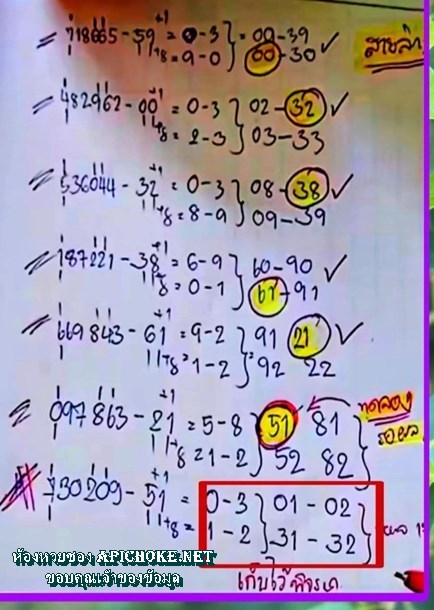 718665 - 59 +1 = 0-3 } = 00-39
11+8 = 9-0 } 00-30
482962 - 00 +1 = 0-3 } 02-32 ✓
11+8 = 2-3 } 03-33
536044 - 32 +1 = 0-3 } 08-38 ✓
11+8 = 8-9 } 09-39
187221 - 38 +1 = 6-9 } 60-90 ✓
11+8 = 0-1 } 61-91
669843 - 61 +1 = 9-2 } 91 21 ✓
11+8 = 1-2 } 92 22
097863 - 21 +1 = 5-8 } 51 81 ทดลอง
11+8 = 1-2 } 52 82 รอผล
730209 - 51 +1 = 0-3 } 01-02
11+8 = 1-2 } 31-32
ห้องหวยซอง APICHOKE.NET
ขอบคุณเจ้าของข้อมูล
เก็บไว้